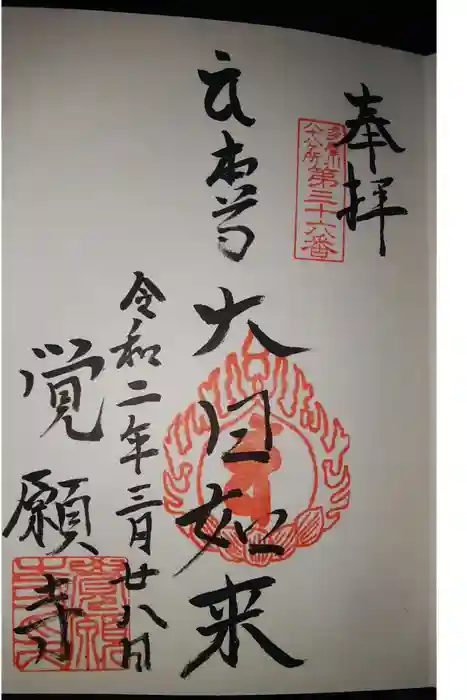 奉拝
多摩川
八十八ヶ所
第三十六番
本尊
大日如来
令和二年三月廿八日
覚願寺